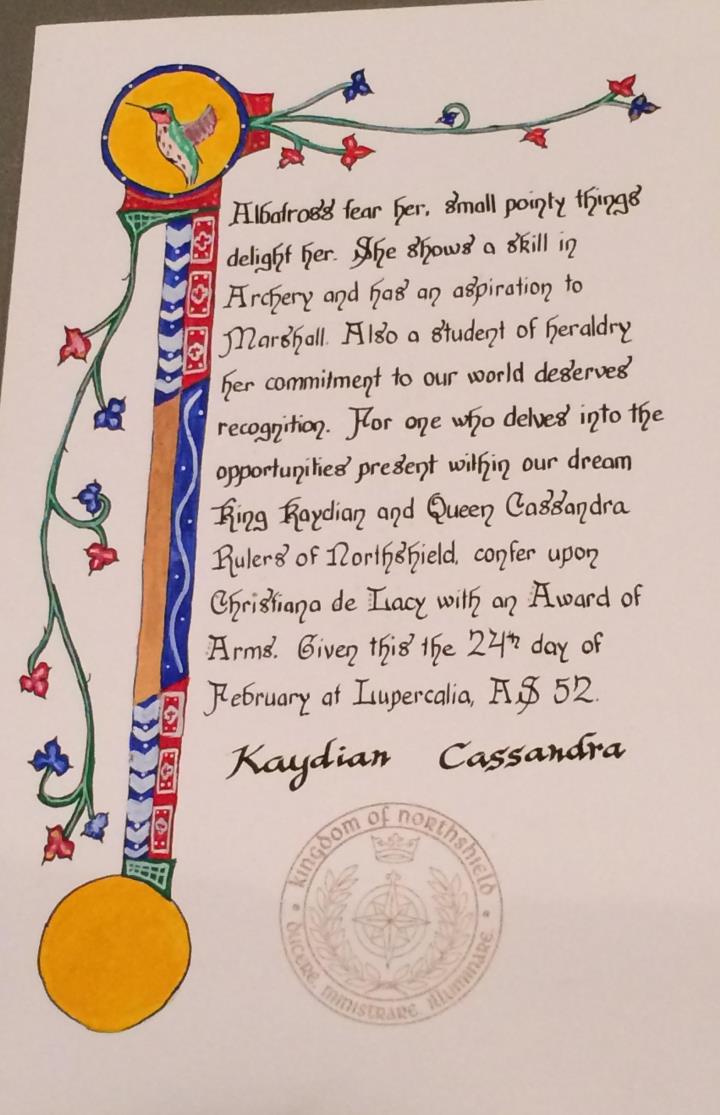 Albatross fear her, small pointy things
delight her. She shows a skill in
Archery and has an aspiration to
Marshall. Also a student of heraldry
her commitment to our world deserves
recognition. For one who delves into the
opportunities present within our dream
King Kaydian and Queen Cassandra
Rulers of Northshield, confer upon
Christiana de Lacy with an Award of
Arms. Given this the 24th day of
February at Lupercalia, AS 52.
Kaydian Cassandra
kingdom of northshield
ducere, ministrare, illuminare